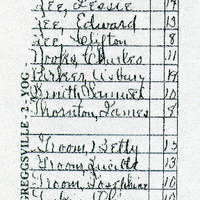 Lee, Lessie 14
Lee, Edward 13
Lee, Clifton 8
Nooks, Charles 11
Parker, Asbury 19
Smith, Samuel 10
Thornton, James 8
Groom, Betty 13
Groom, Lucille 13
Groom, Josephine 10
10
GREGGSVILLE - 2 - YOG -